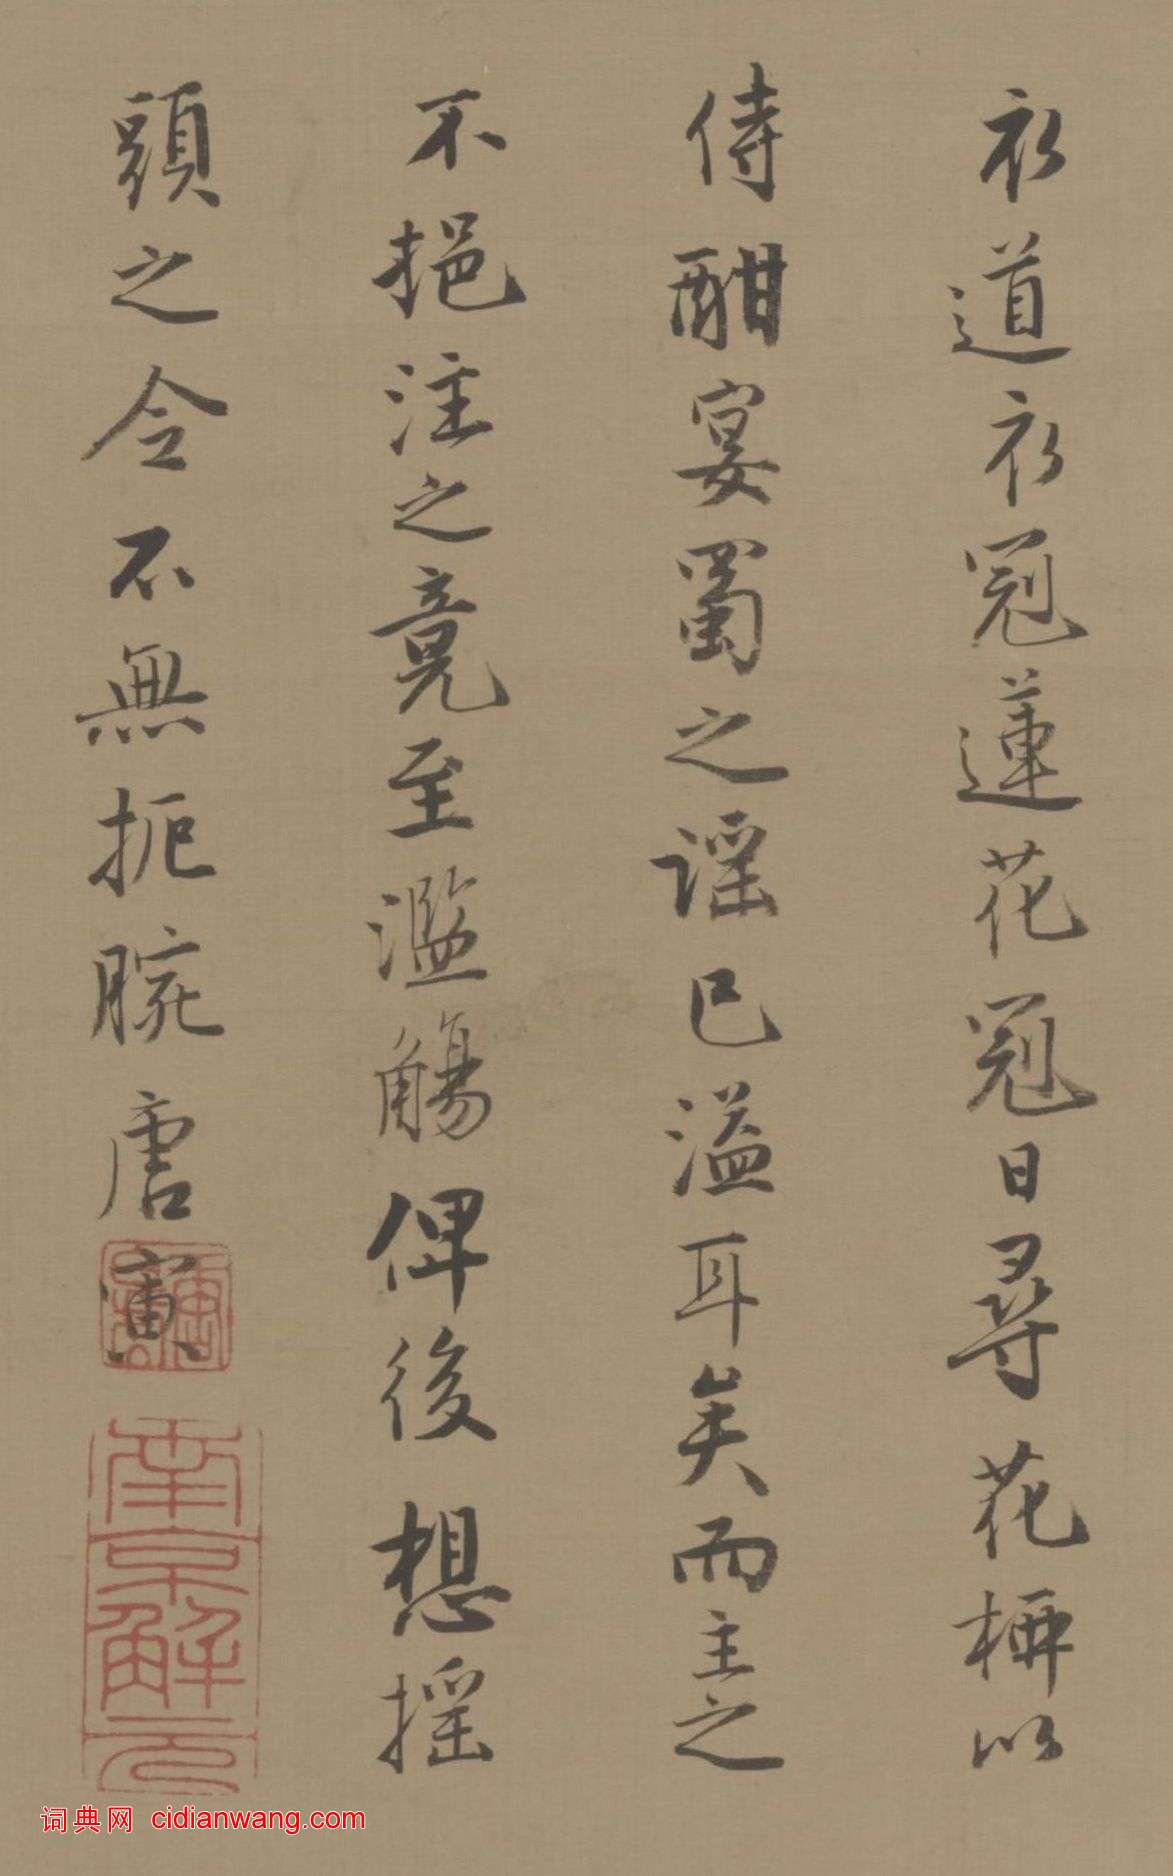 衣道衣冠蓮花冠日尋花柳以
侍酣宴蜀之謡已溢耳矣而主之
不挹注之竟至濫觴俾後想摇
頭之令不無扼腕唐寅
南京解元
词典网 cidianwang.com